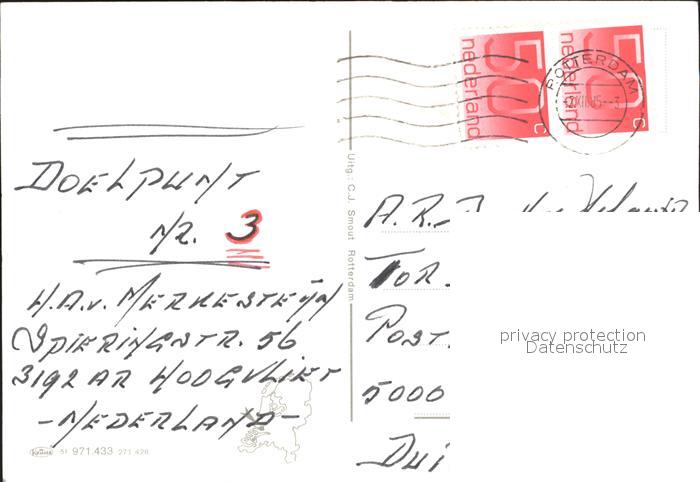 DOELPUNT
NR. 3
H.A.v. MERKESTEŸN
SPIERINGSTR. 56
3192 AR HOOGVLIET
-NEDERLAND-
Krüger 51 971.433 271 428
Uitg.: C.J. Smout Rotterdam
50 c nederland
50 c nederland
ROTTERDAM
A.R.
TOR
POST.
5000
DUI
privacy protection
Datenschutz